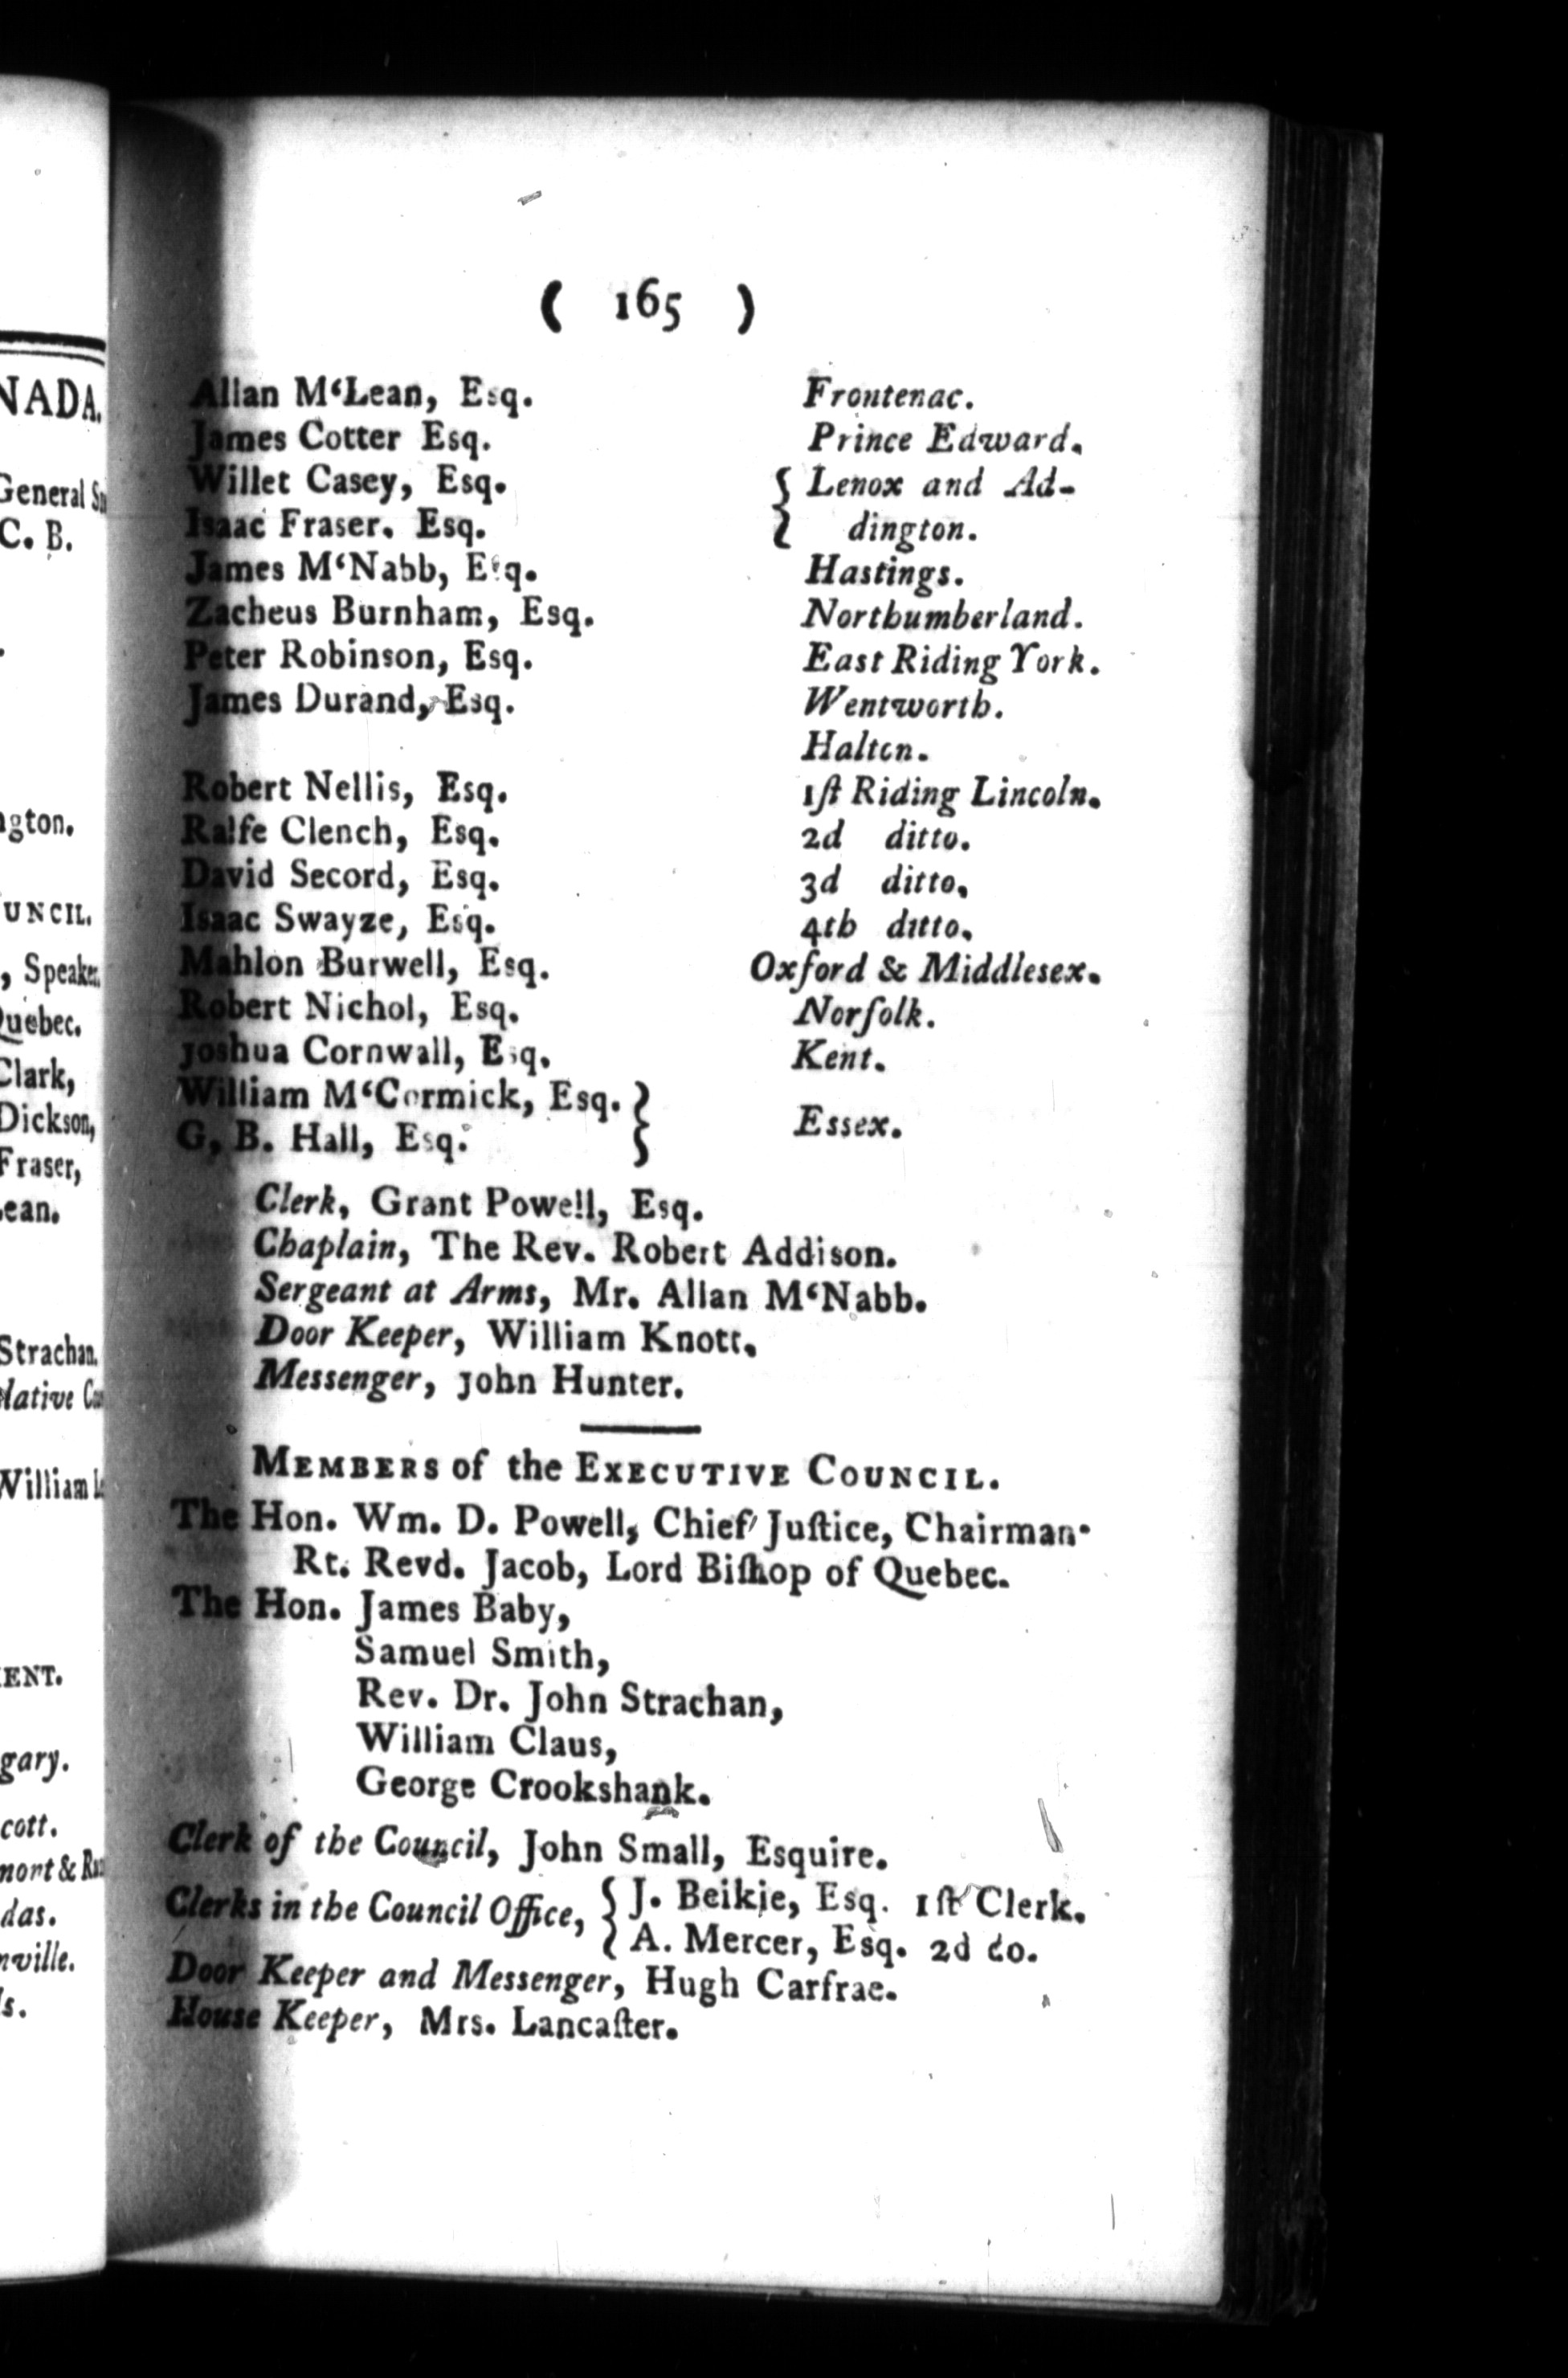 NADA.
General
C. B.
ngton.
UNCIL.
, Speaker.
Quebec.
Clark,
Dickson,
Fraser,
Lean.
Strachan.
lative
William
ENT.
gary.
cott.
mont &
das.
nville.
ls.
( 165 )
Allan M‘Lean, Esq. Frontenac.
James Cotter Esq. Prince Edward.
Willet Casey, Esq. { Lenox and Ad-
Isaac Fraser. Esq. dington.
James M‘Nabb, Esq. Hastings.
Zacheus Burnham, Esq. Northumberland.
Peter Robinson, Esq. East Riding York.
James Durand, Esq. Wentworth.
Halton.
Robert Nellis, Esq. 1ſt Riding Lincoln.
Ralfe Clench, Esq. 2d ditto.
David Secord, Esq. 3d ditto.
Isaac Swayze, Esq. 4th ditto.
Mahlon Burwell, Esq. Oxford & Middlesex.
Robert Nichol, Esq. Norfolk.
Joshua Cornwall, Esq. Kent.
William M‘Cormick, Esq. }
G, B. Hall, Esq. Essex.
Clerk, Grant Powell, Esq.
Chaplain, The Rev. Robert Addison.
Sergeant at Arms, Mr. Allan M‘Nabb.
Door Keeper, William Knott.
Messenger, John Hunter.
MEMBERS of the EXECUTIVE COUNCIL.
The Hon. Wm. D. Powell, Chief Juſtice, Chairman.
Rt. Revd. Jacob, Lord Biſhop of Quebec.
The Hon. James Baby,
Samuel Smith,
Rev. Dr. John Strachan,
William Claus,
George Crookshank.
Clerk of the Council, John Small, Esquire.
Clerks in the Council Office, { J. Beikie, Esq. 1ſt Clerk.
A. Mercer, Esq. 2d do.
Door Keeper and Messenger, Hugh Carfrae.
House Keeper, Mrs. Lancaſter.